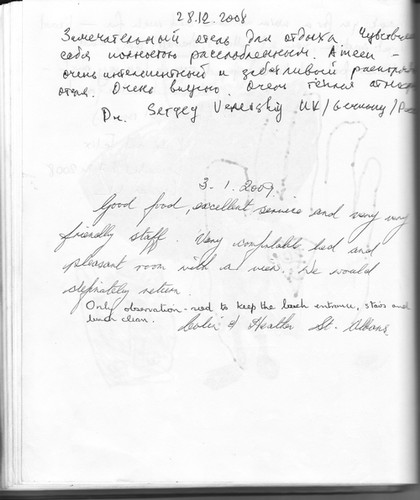 28.12.2008
Замечательный отель для отдыха. Чувствовал
себя полностью расслабленным. Ameen -
очень интеллигентный и заботливый
отеля. Очень вкусно. Очень тёплая
Dr. Sergey UK/Germany/
3.1.2009.
Good food, excellent service and very very
friendly staff. Very comfortable bed and
pleasant room with a view. We would
definately return.
Only observation - need to keep the beach entrance, stairs and
beach clean.
Colin & Heather St. Albans.